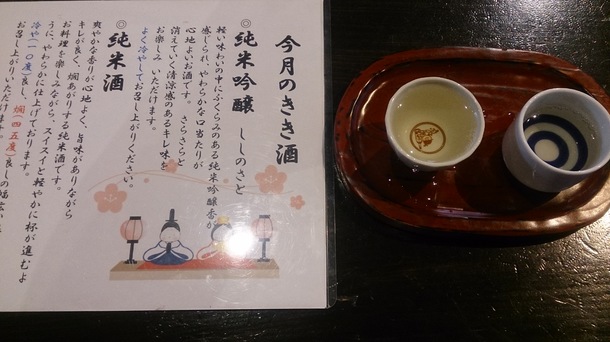 今月のきき酒
◎純米吟醸 ししのさと
軽い味わいの中にふくらみのある純米吟醸香が
感じられ、やわらかな口当たりが
心地よいお酒です。 さらさらと
消えていく清涼感のあるキレ味を
お楽しみいただけます。
よく冷やしてお召し上がりください。
◎純米酒
爽やかな香りが心地よく、旨味がありながら
キレが良く、燗あがりする純米酒です。
お料理を楽しみながら、スイスイと軽やかに杯が進むよ
うに、やわらかに仕上げております。
冷や(一〇度)良し、燗(四五度)良しの幅広い
お召し上がりいただけます。